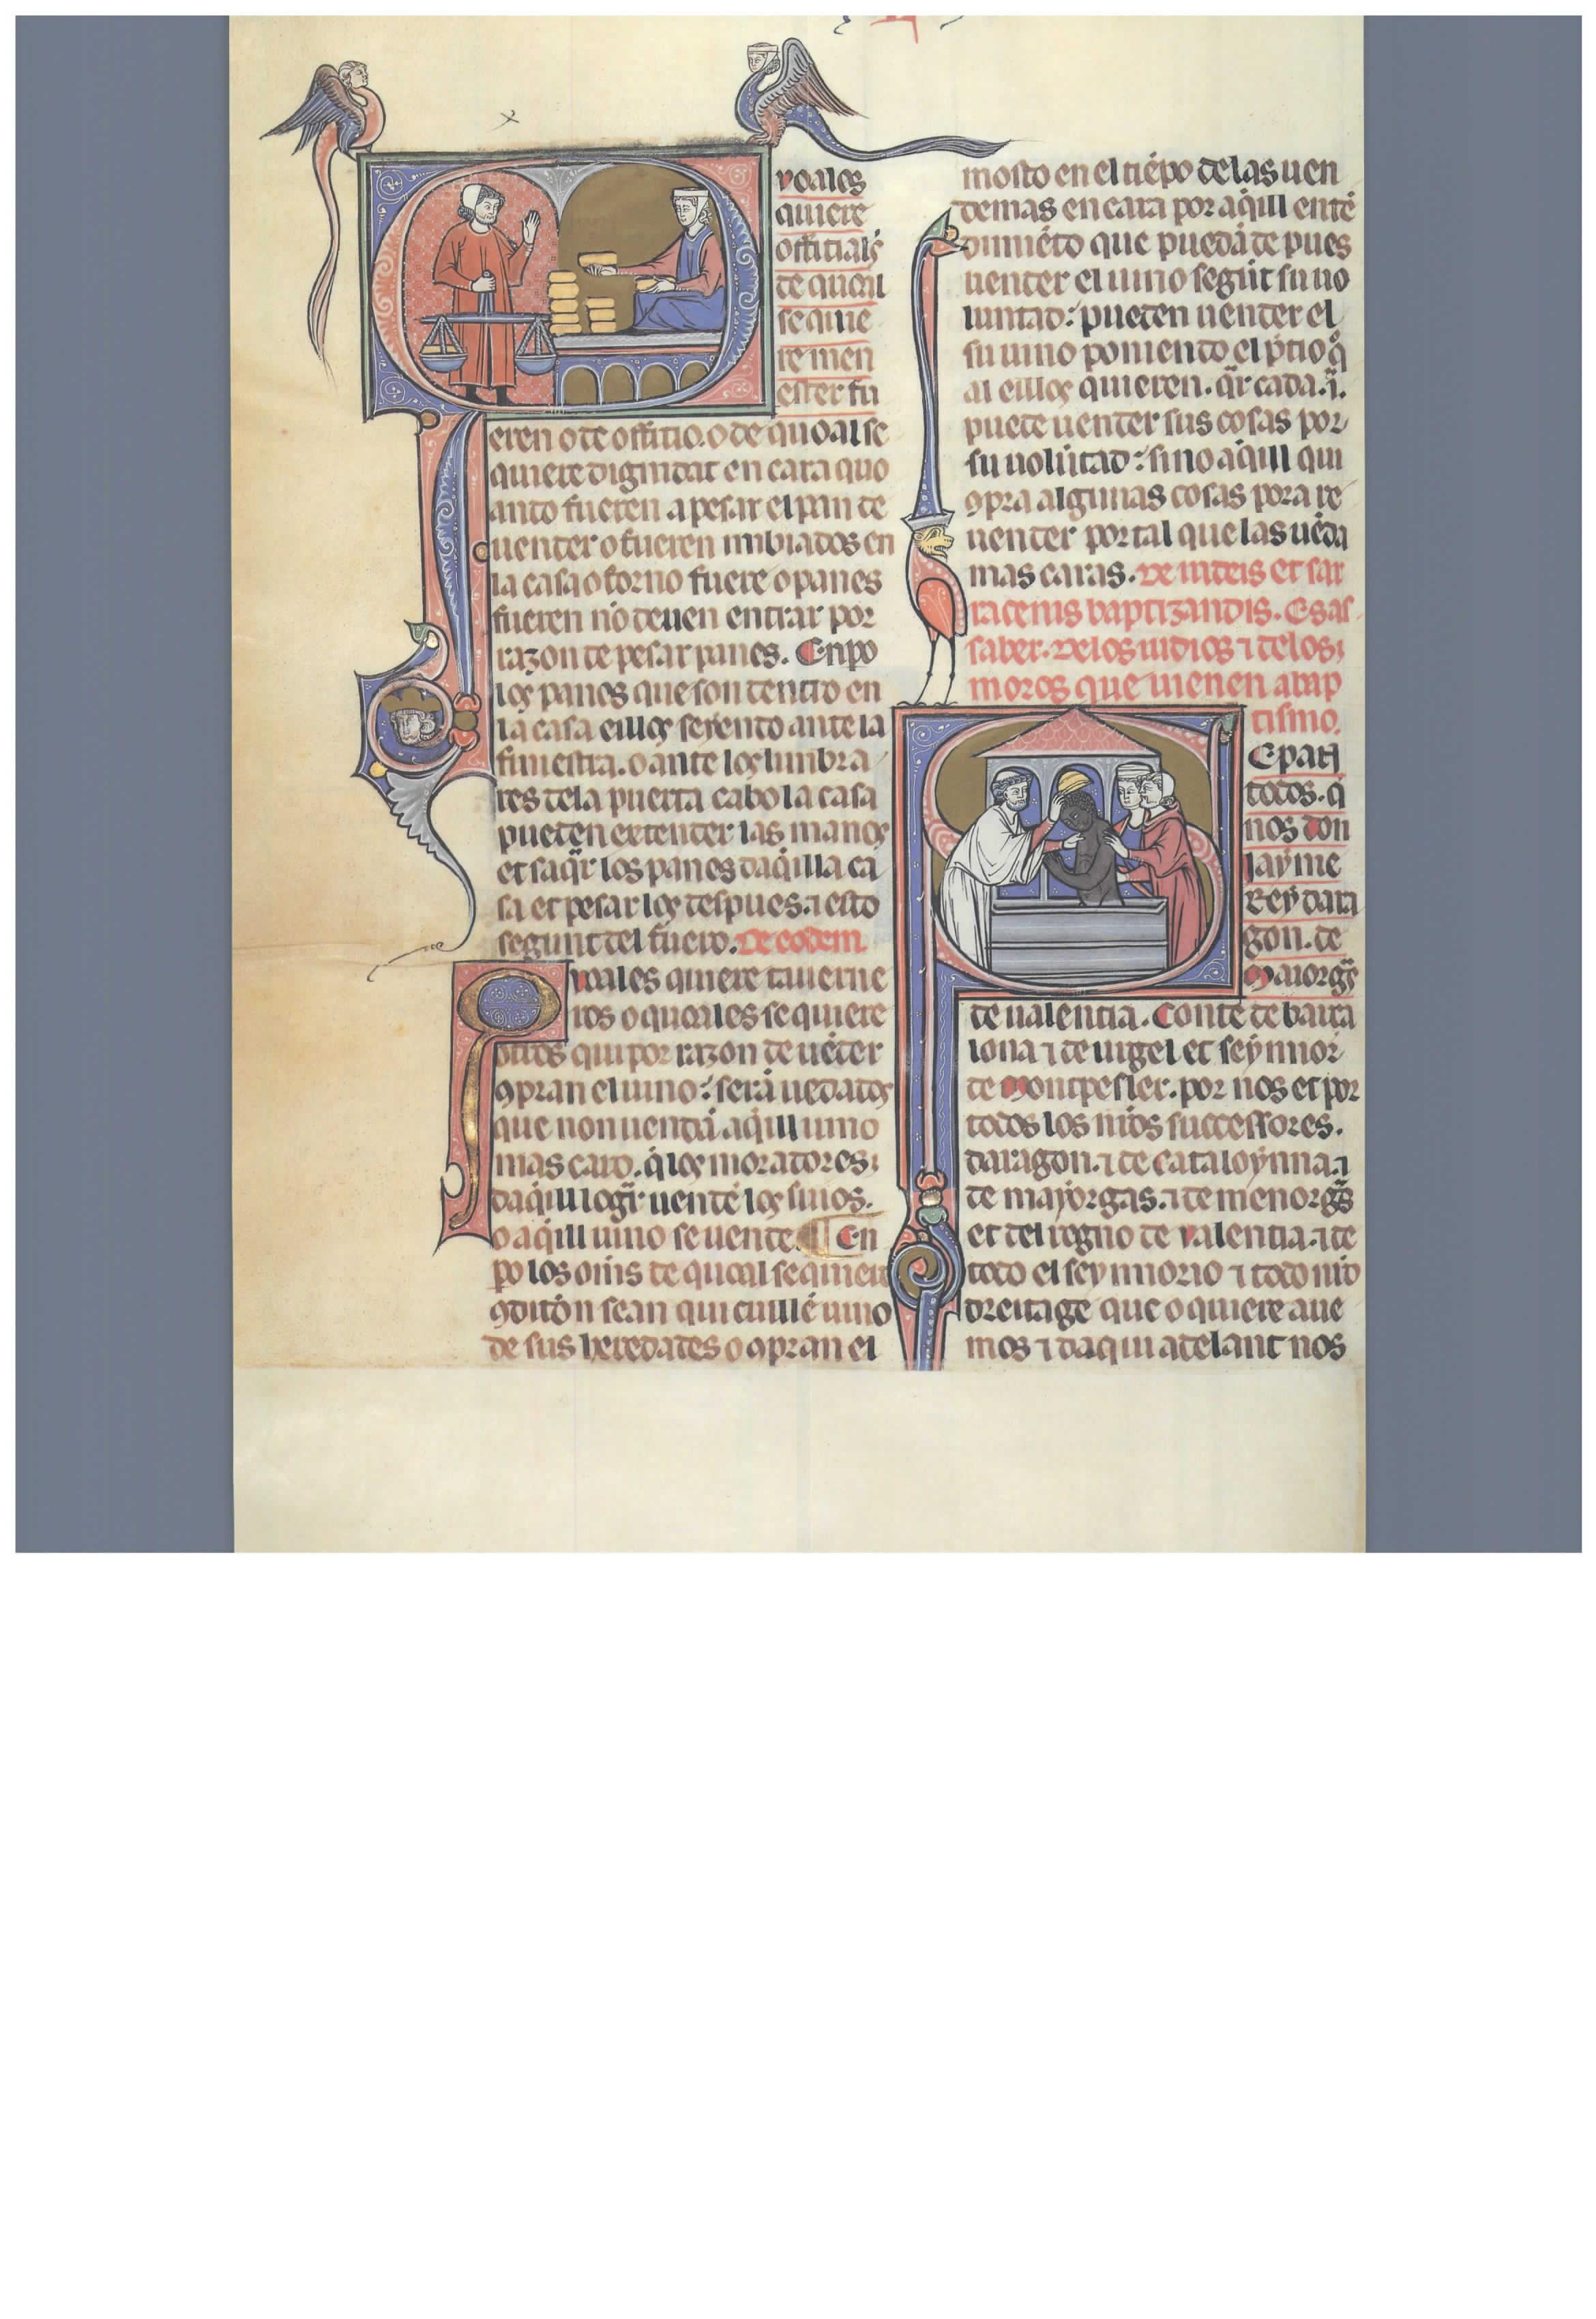 uoales
quiere
officials
de quoal
se quie
re men
ester fu
eren o de officio. o de quoal se
quiere dignidat en cara quo
ando fueren a pesar el pan de
uender o fueren imbiados en
la casa o forno fuere o panes
fueren nō deuen entrar por
razon de pesar panes. Enpo
los panes que son dentro en
la casa eillos seyendo ante la
finiestra. o ante los limbra
res dela puerta cabo la casa
pueden extender las manos
et saq̄r los panes daq̄illa ca
sa et pesar los despues. ⁊ esto
segunt del fuero. De eodem
Quoales quiere tauerne
ros o quoales se quiere
otros qui por razon de uēder
ꝯpran el uino: serā uedados
que non uendā aq̄ill uino
mas caro. q̄ los moradores
daq̄ill logr̄ uendē los suios.
o aq̄ill uino se uende. ¶ En
po los om̄s de quoal se quiere
ꝯdiciōn sean qui cuillē uino
de sus heredades o ꝯpran el
mosto en el tiēpo de las uen
demas en cara por aq̄ill entē
dimiēto que puedā de pues
uender el uino segūt su uo
luntad: pueden uender el
su uino poniendo el p̄cio q̄
ad eillos quieren. q̄r cada .ī.
puede uender sus cosas por
su uolūtad: sino aq̄ill qui
ꝯpra algunas cosas pora re
uender por tal que las uēda
mas caras. De iudeis et sar
racenis baptizandis. Es a s
saber. De los iudios ⁊ de los
moros que uienen a bap
tismo.
Epan
todos. q̄
nos don
Jayme
Rey dara
gon. de
Maiorgs̄
de ualentia. Conde de barca
lona ⁊ de urgel et seynnor
de Montpesler. por nos et por
todos los nr̄os successores.
daragon. ⁊ de cataloynna. ⁊
de mayorgas. ⁊ de menorgs̄
et del regno de valentia. ⁊ de
todo el seynnorio ⁊ todo nr̄o
dreitage que o quiere aue
mos ⁊ daqui adelant nos